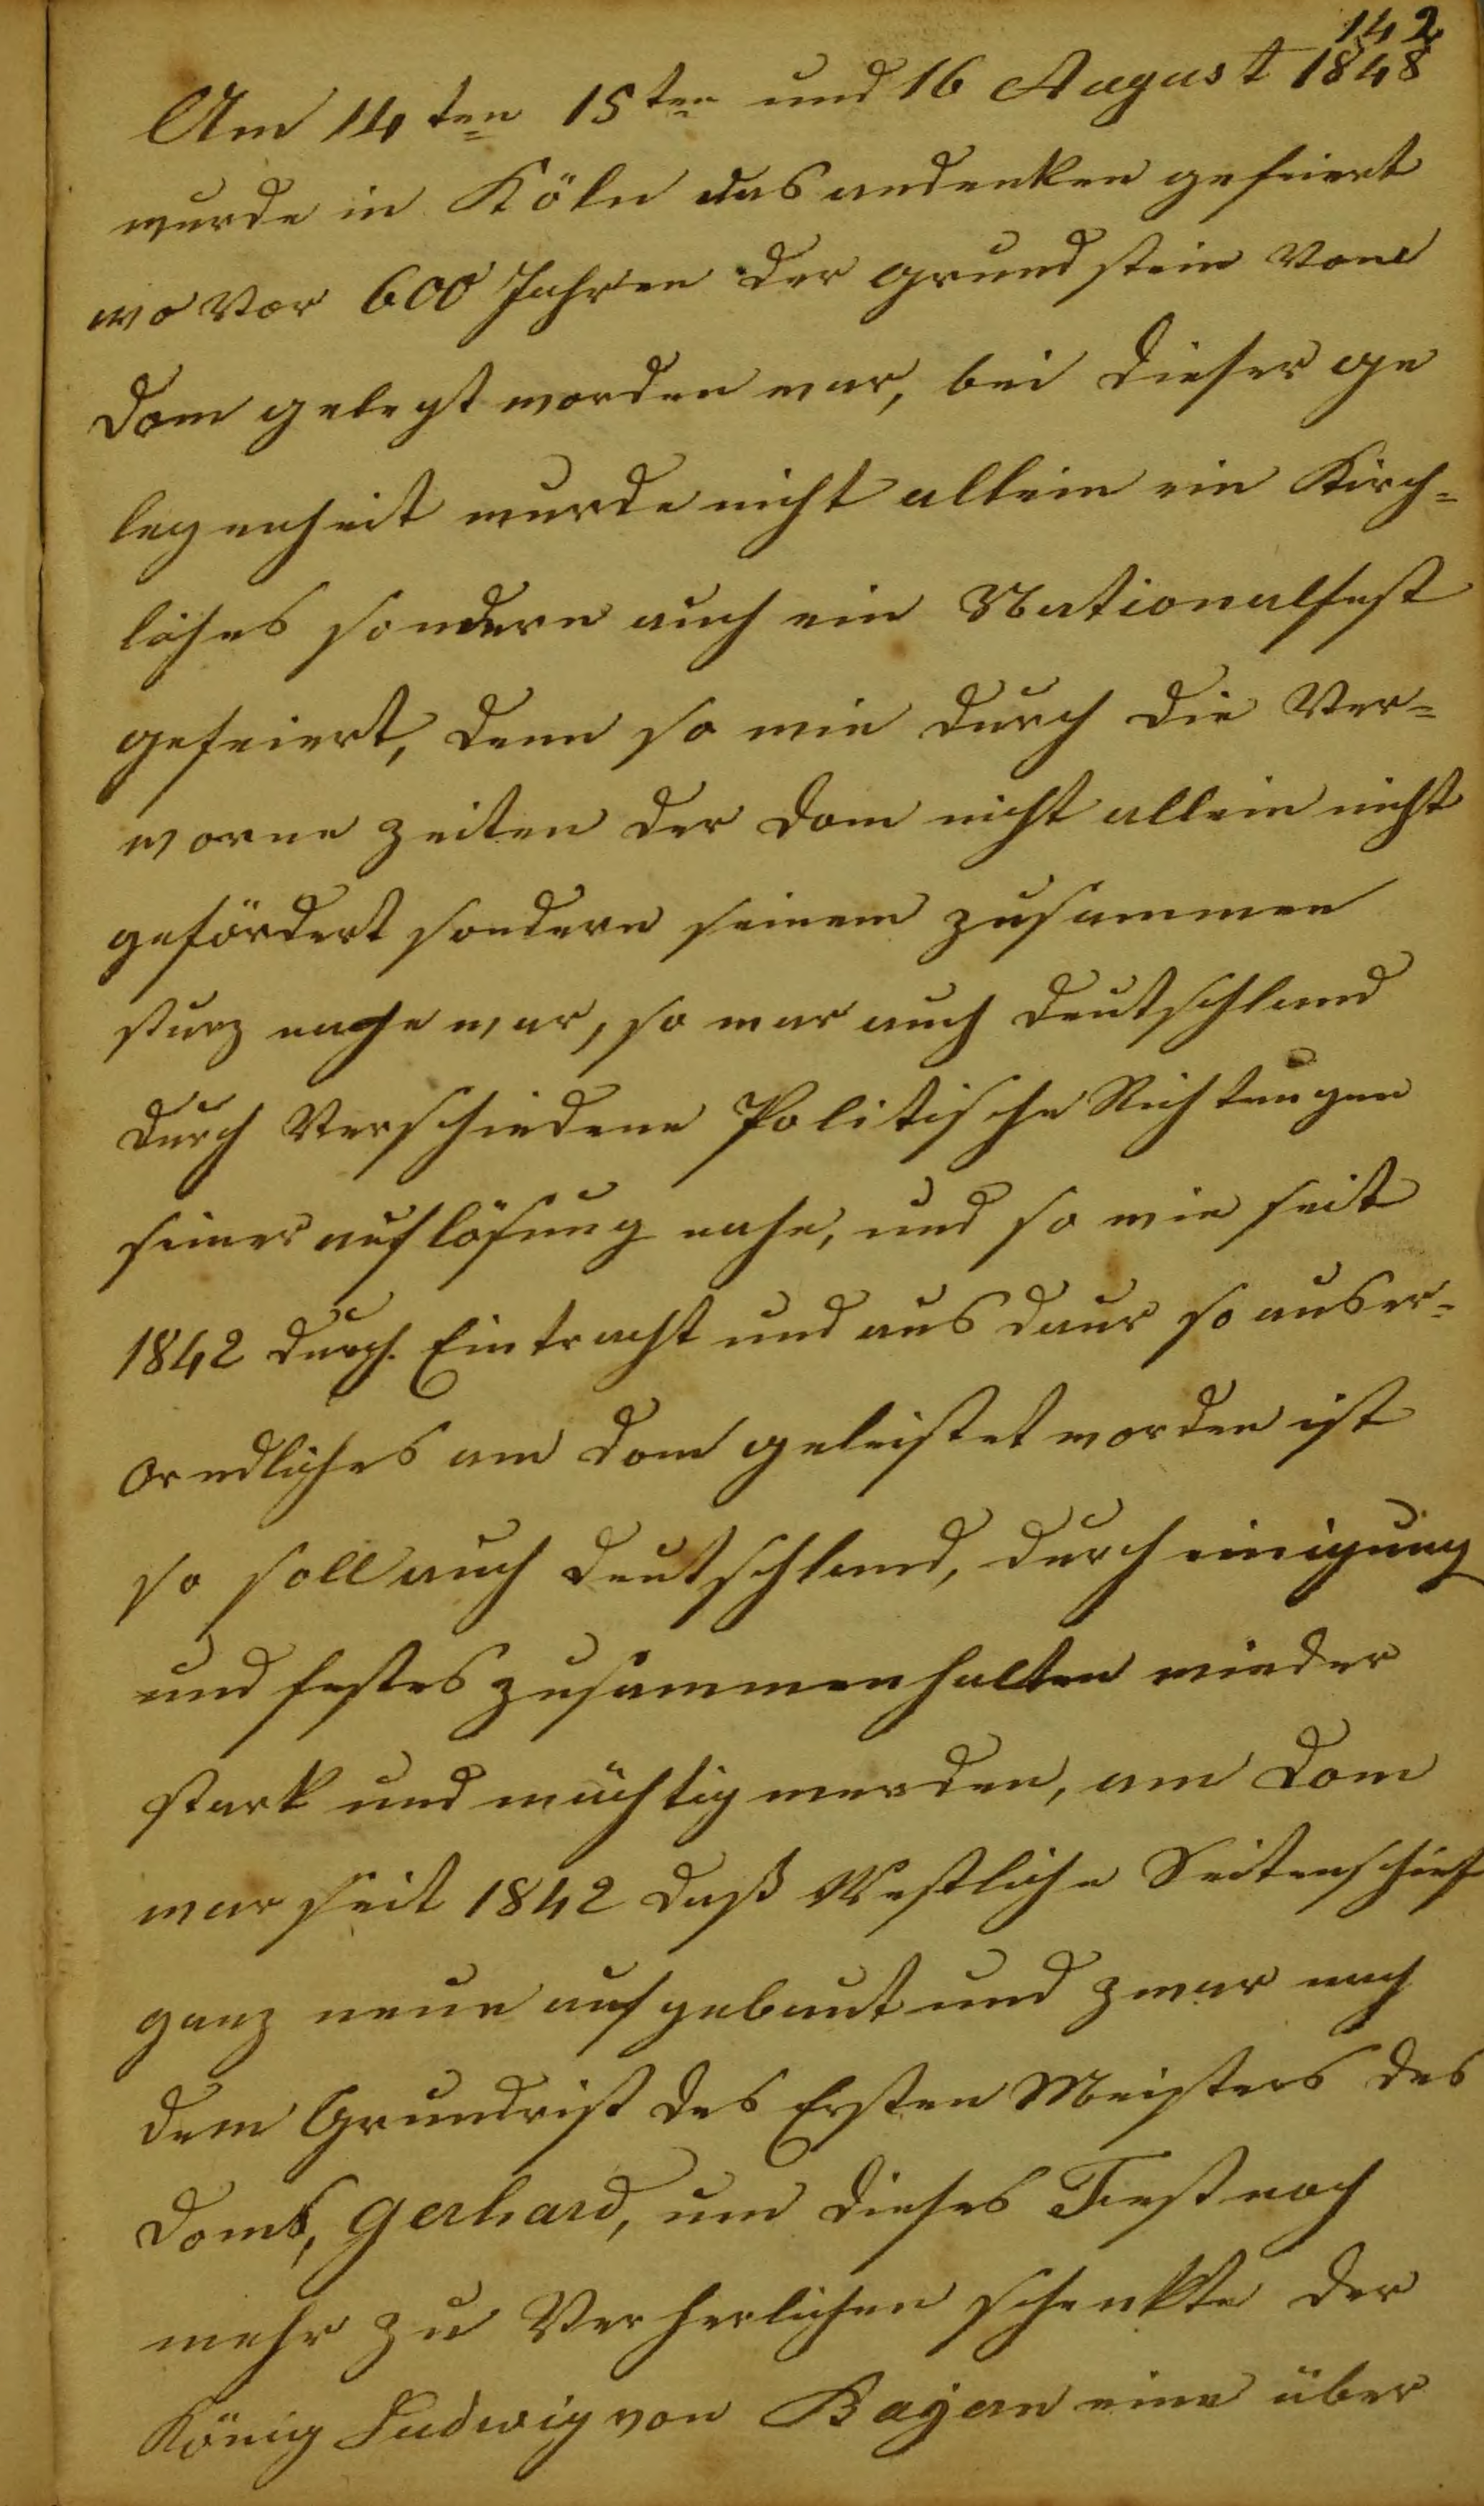 142
Am 14ten 15ten und 16 August 1848
wurde in Köln das andenken gefeiert
wo Vor 600 Jahren der grundstein Vom
Dom gelegt worden war, bei dieser ge
legenheit wurde nicht allein ein Kirch=
liches sondern auch ein Nationalfest
gefeiert, denn so wie durch die Ver=
worne zeiten der Dom nicht allein nicht
gefördert sondern seinem zusammen
sturz nahe war, so war auch deutschland
durch Verschiedene Politische Richtungen
seiner auflösung nahe, und so wie seit
1842 durch Eintracht und aus daur so auser=
ordliches am Dom geleistet worden ist
so soll auch deutschland, durch einigung
und festes zusammenhalten wieder
stark und mächtig werden, am Dom
war seit 1842 daß Westliche Seitenschief
ganz neue aufgebaut und zwar nach
dem Grundriß des Ersten Meisters des
Doms, Gerhard, um dieses Fest noch
mehr zu Verherlichen schenkte der
König Ludwig von Bayern eine über